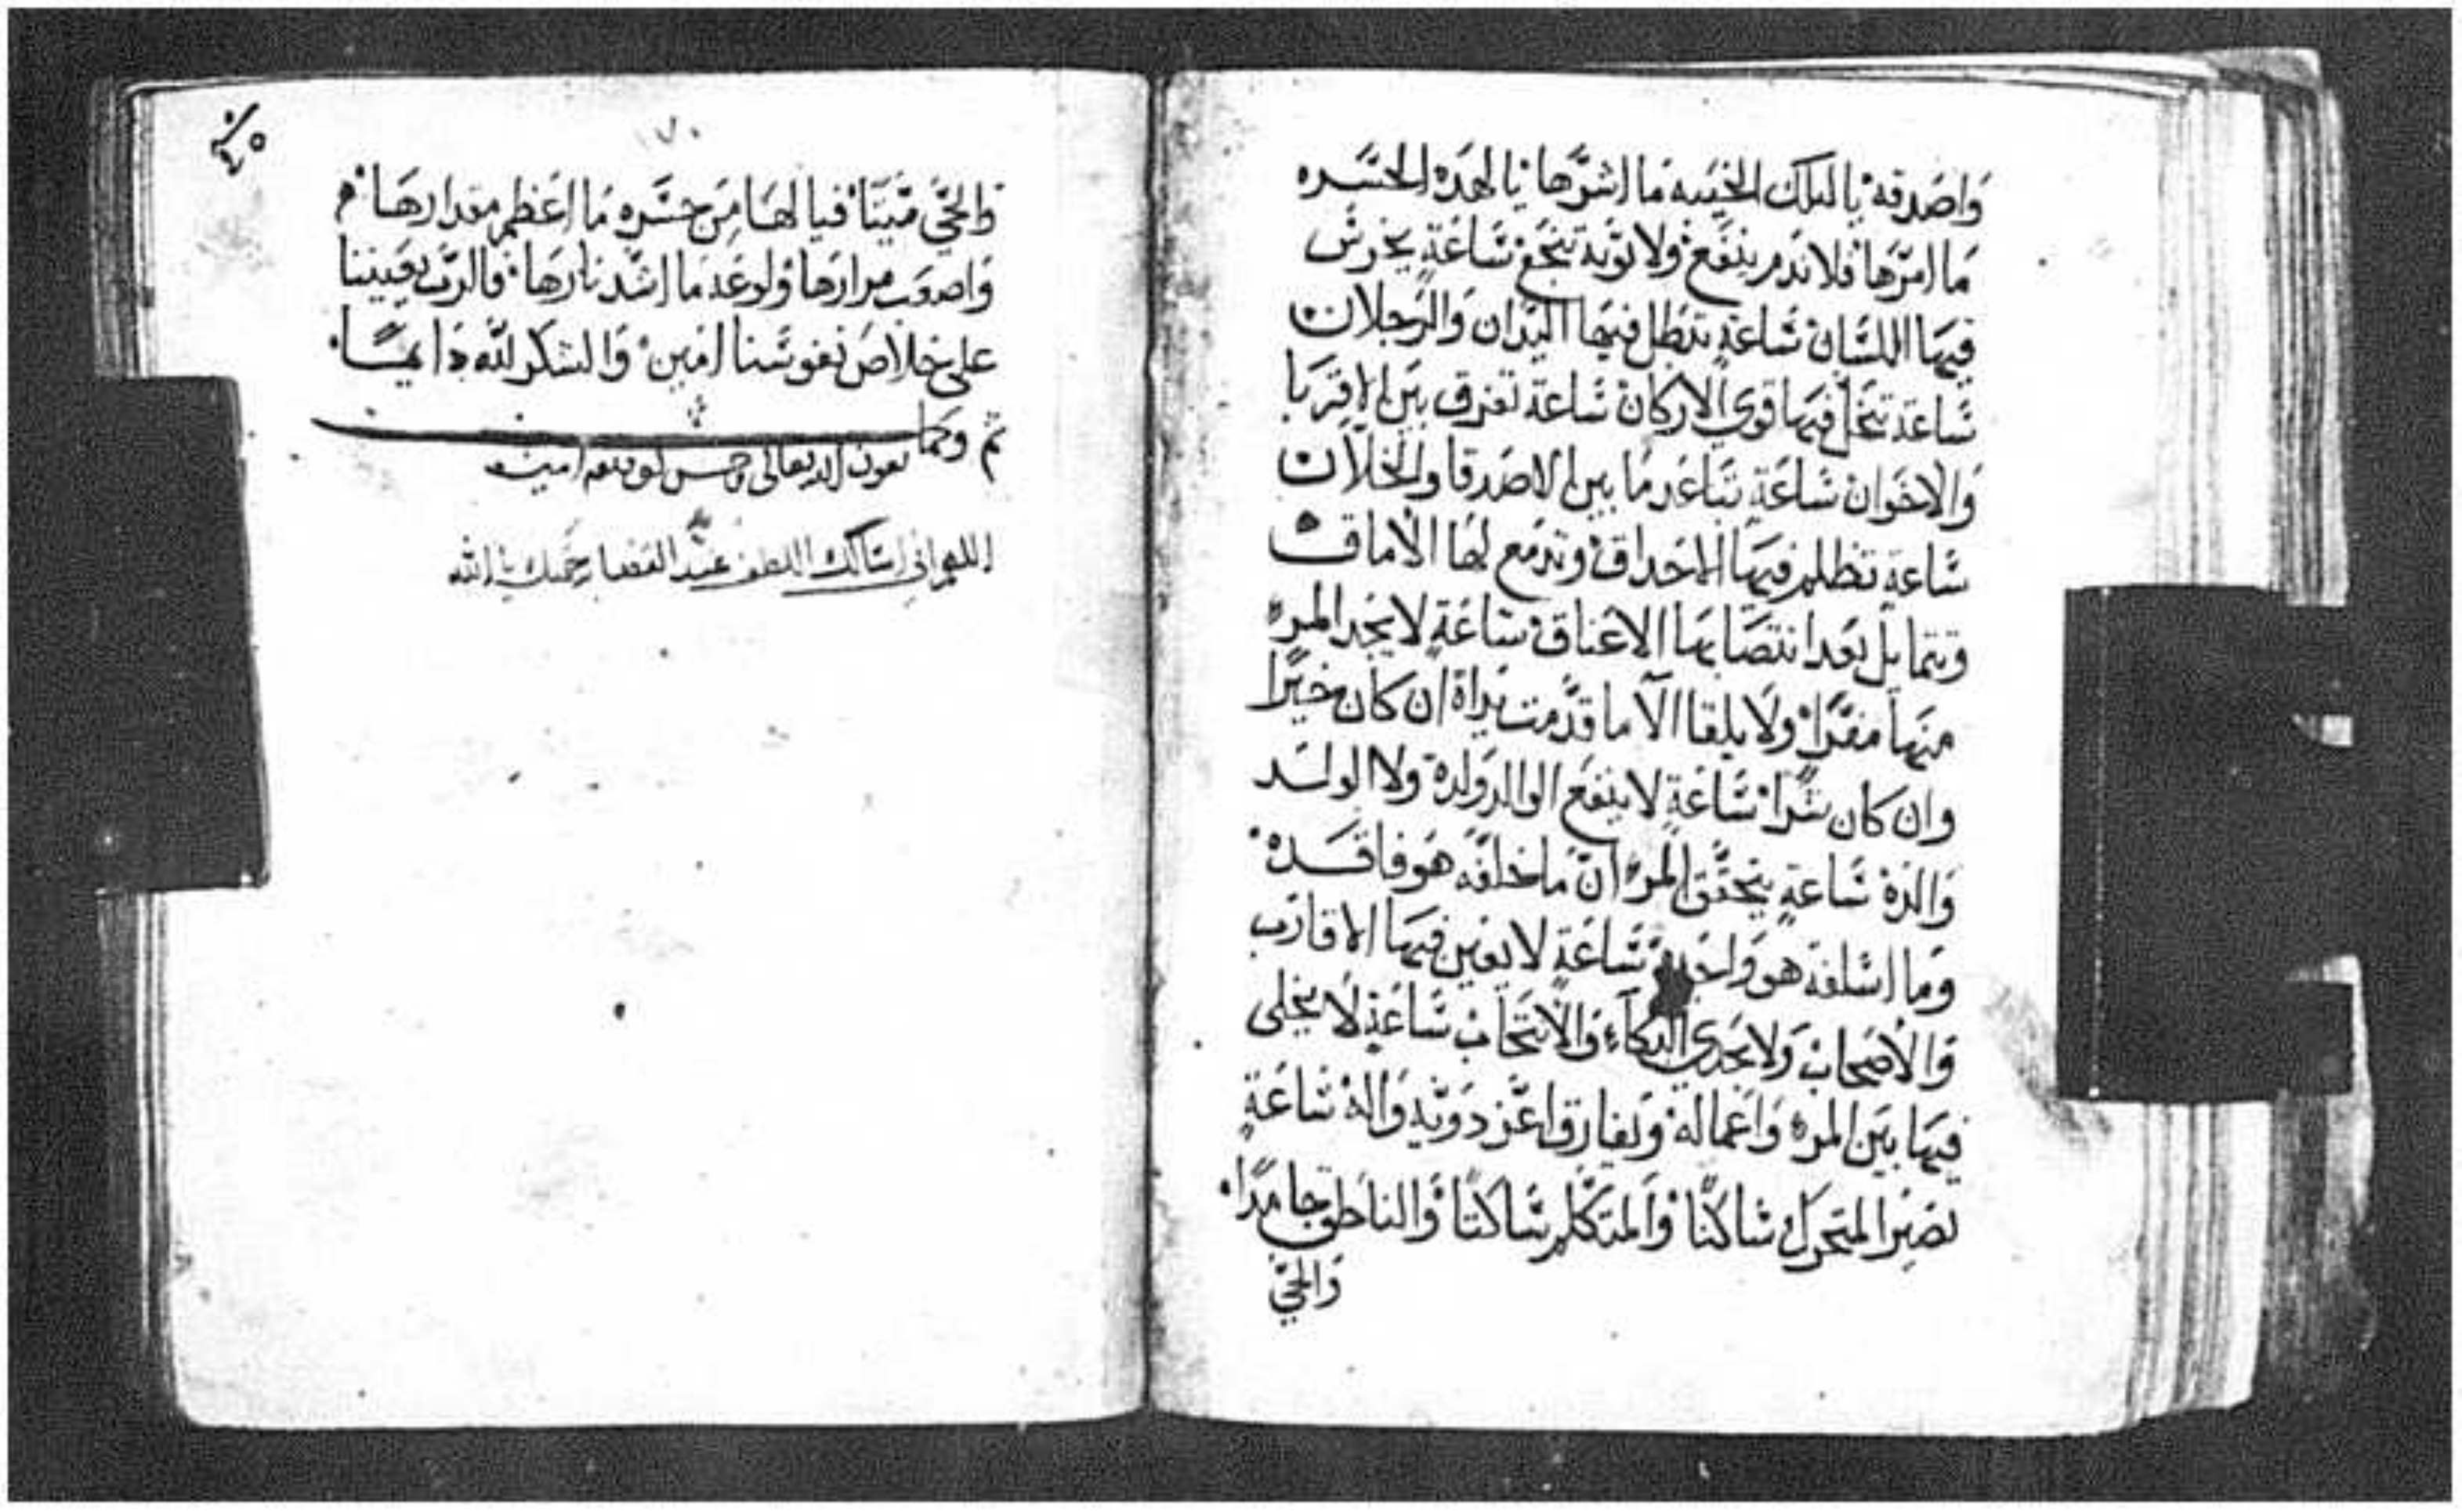 واصدقه يا لتلك الخيبه ما اشرها يا لهذه الحسره
ما امرها فلا ندم ينفع ولا توبة تنجع ساعةٍ يخرس
فيها اللسان ساعةٍ تبطل فيها اليدان والرجلان
ساعة تنحل فيها قوي الاركان ساعة تفرق بين الاقربا
والاخوان ساعةٍ تباعد ما بين الاصدقا والخلان
ساعةٍ تظلم فيها الاحداق وتدمع لها الاماق
وتتمايل بعد انتصابها الاعناق ساعةٍ لا يجد المرء
منها مفرًا ولا يلقا الّا ما قدّمت يداهُ ان كان خيرًا
وان كان شرًا ساعةٍ لا ينفع الوالد ولدهُ ولا الولد
والدهُ ساعةٍ يتحقق المرء ان ما خلفه هو فاقده
وما اسلفه هو واجده ساعةٍ لا يعين فيها الاقارب
والاصحاب ولا يجدي البكاء والانتحاب ساعةٍ لا يخلى
فيها بين المرء واعماله ويفارق اعز ذويه واله ساعةٍ
يصير المتحرك ساكنًا والمتكلم ساكتًا والناطق جامدًا
والحي
١٧٠
والحي ميتًا فيا لها من حسره ما اعظم مقدارها
واصعب مرارها ولوعه ما اشد نارها فالرب يعيننا
على خلاص نفوسنا امين والشكر لله دايمًا
تم وكمل
بعون الله تعالى وحسن توفيقه امين
اللهم اني اسالك اللطف عند القضا برحمتك يا الله